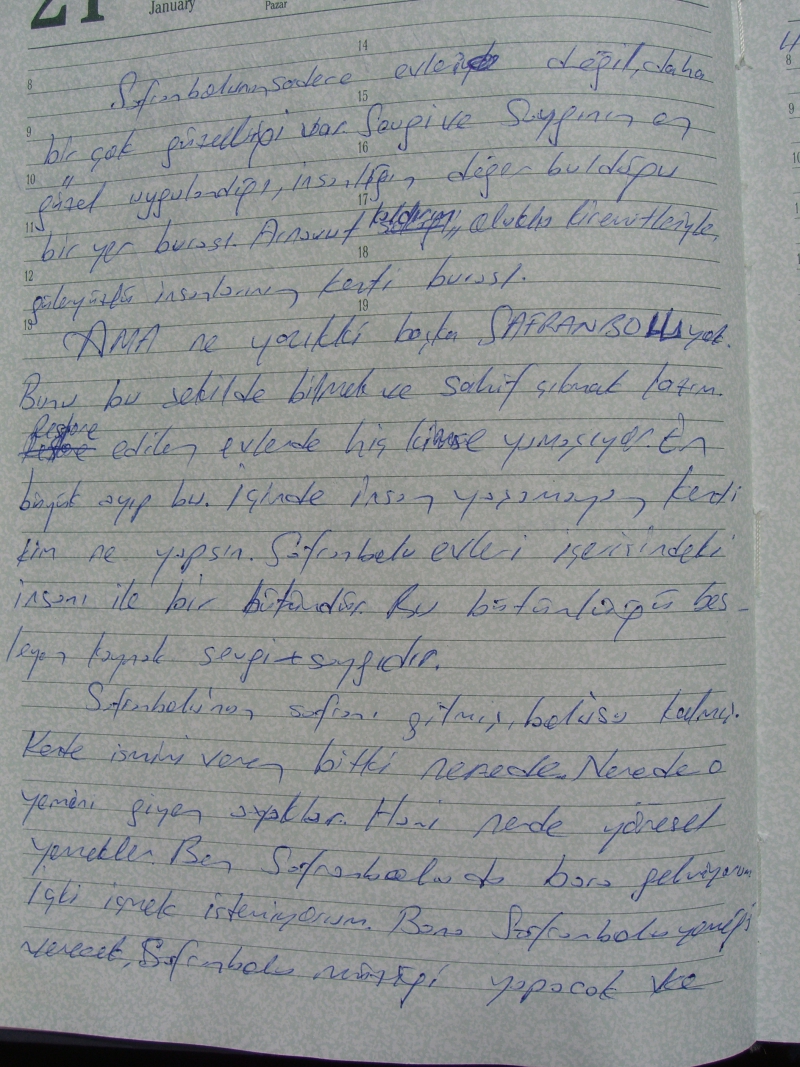 21
January
Pazar
8 14
Safranbolunun sadece evleri değil, daha
9 15
bir çok güzelliği var. Sevgi ve Saygının en
10 16
güzel uygulandığı, insanlığın değer bulduğu
11 17
bir yer burası. Arnavut kaldırımı, oluklu kiremitleriyle,
12 18
güleryüzlü insanlarının kenti burası.
13 19
AMA ne yazıkki başka SAFRANBOLU yok.
Bunu bu şekilde bilmek ve sahip çıkmak lazım.
Restore edilen evlerde hiç kimse yaşamıyor. En
büyük ayıp bu. İçinde insan yaşamayan kenti
kim ne yapsın. Safranbolu evleri içerisindeki
insanı ile bir bütündür. Bu bütünlüğü bes-
leyen kaynak sevgi + saygıdır.
Safranbolu'nun safranı gitmiş, bolusu kalmış.
Kente ismini veren bitki nerede. Nerede o
yemeni giyen ayaklar. Hani nerde yöresel
yemekler. Ben Safranboluda bara gelmiyorum
İçki içmek istemiyorum. Bana Safranbolu yemeği
verecek, Safranbolu müziği yapacak ve
8
9
10